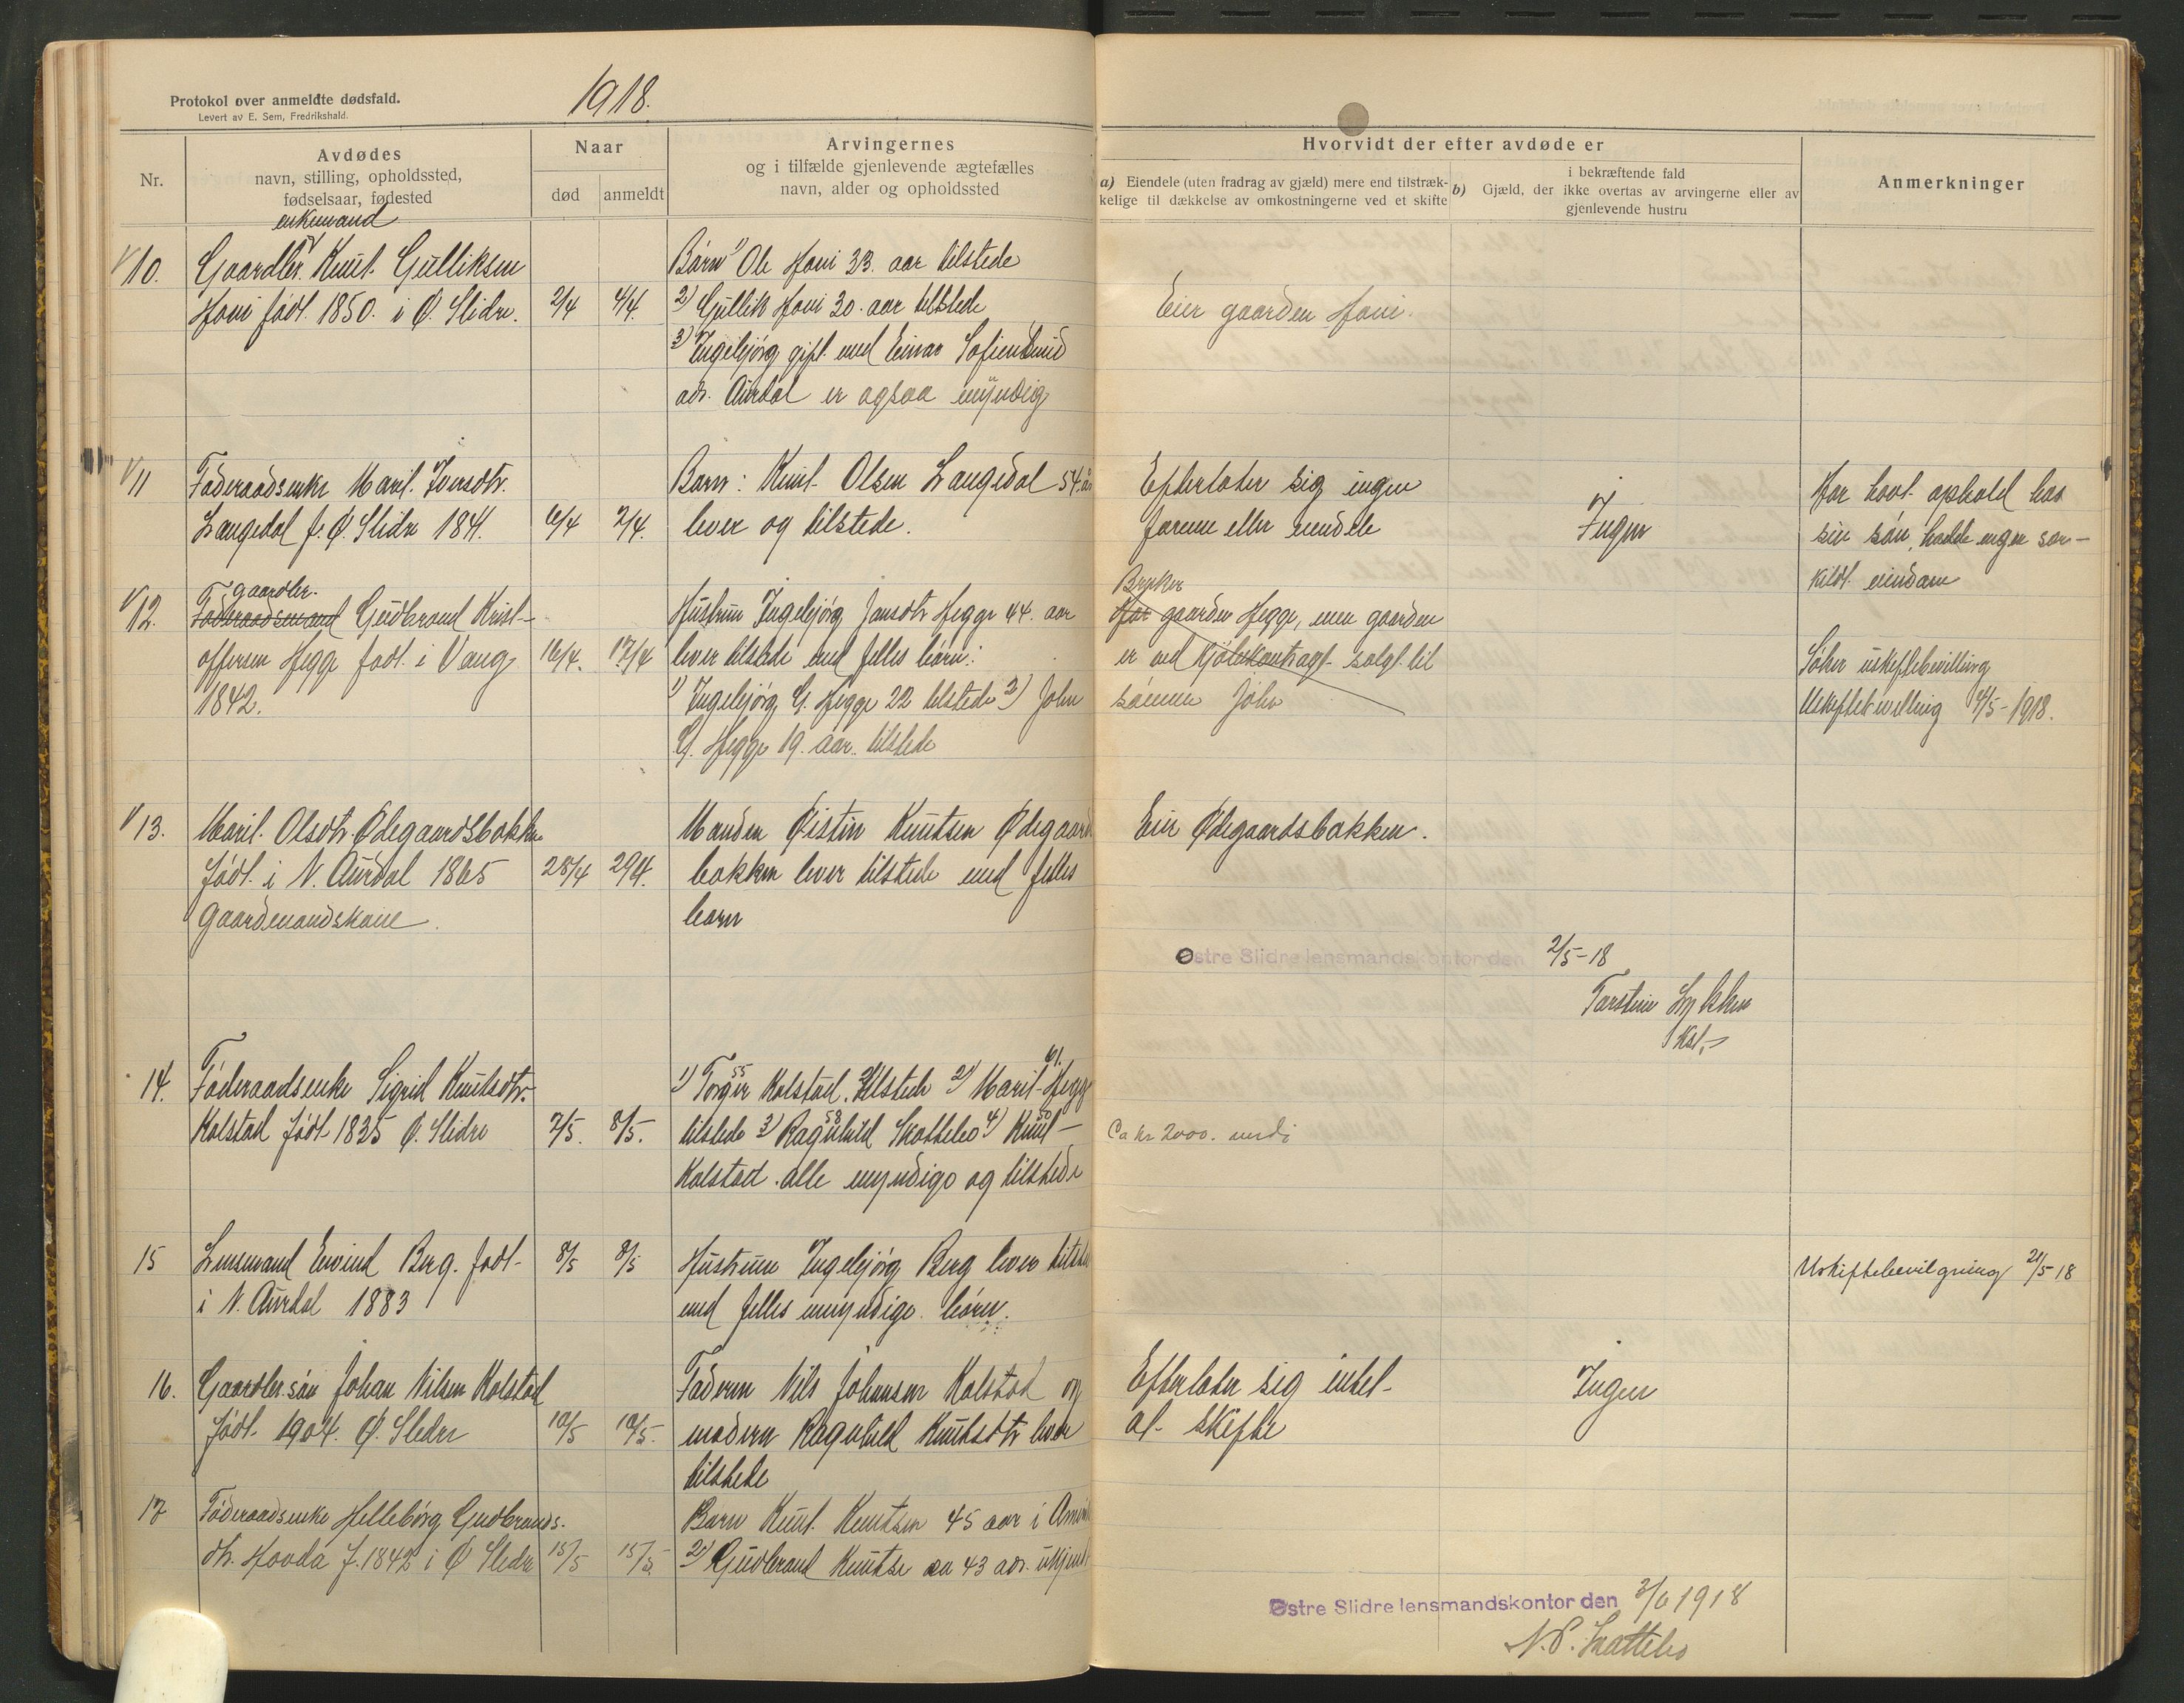 Protokol over anmeldte dødsfald.
Levert av E. Sem, Fredrikshald.
1918.
Nr.
Avdødes
navn, stilling, opholdssted,
fødselsaar, fødested
Naar
død
anmeldt
Arvingernes
og i tilfælde gjenlevende ægtefælles
navn, alder og opholdssted
Hvorvidt der efter avdøde er
a) Eiendele (uten fradrag av gjæld) mere end tilstræk-
kelige til dækkelse av omkostningerne ved et skifte
i bekræftende fald
b) Gjæld, der ikke overtas av arvingerne eller av
gjenlevende hustru
Anmerkninger
enkemand
10. Gaardbr. Knut Gulliksen
Hovi født 1850. i Ø. Slidre. 2/4 4/4.
Børn 1) Ole Hovi 33. aar tilstede
2) Gullik Hovi 30. aar tilstede
3) Ingebjørg gift med Einar
adr. Aurdal er ogsaa myndig
Eier gaarden Hovi.
11 Føderaadsenke Marit Iversdtr.
Langedal f. Ø. Slidre 1841. 6/4 7/4.
Barn: Knut Olsen Langedal 54 aar
lever og tilstede.
Efterlater sig ingen
formue eller eiendele
Ingen
Har havt ophold hos
sin søn, hadde ingen sær-
skildt eiendom
gaardbr.
12. Føderaadsmand Gudbrand Krist-
offersen Hegge født i Vang 16/4. 17/4
1842.
Hustrun Ingebjørg Jonsdtr Hegge 44. aar
lever tilstede med felles børn:
1) Ingebjørg G. Hegge 22 tilstede 2) John
G. Hegge 19. aar. tilstede
Bruker
Har gaarden Hegge, men gaarden
er ved kjøbekontragt solgt til
sønnen John
Søker uskiftebevilling
Uskiftebevilling 4/5-1918.
13. Marit Olsdtr. Ødegaardsbakken
født i N. Aurdal 1865 28/4 29/4.
Gaardmandskone.
Manden Øistin Knutsen Ødegaards
bakken lever tilstede med felles
barn
Eier Ødegaardsbakken.
Østre Slidre lensmandskontor den 2/5-18
Torstein Lykken
Kst.
14. Føderaadsenke Sigrid Knutsdtr.
Kolstad født 1835 Ø. Slidre 7/5. 8/5.
1) Torger 55 Kolstad. tilstede 2) Marit Hegge 61.
tilstede 3) Ragnhild 58 Skattebo 4) Knut 50
Kolstad. alle myndige og tilstede
Ca kr 2000. verdi
15 Lensmand Eivind Berg. født
i N. Aurdal 1883 8/5 8/5
Hustrun Ingebjørg Berg lever tilstede
med felles umyndige børn.
Uskiftebevilgning 21/5 18
16. Gaardbr.søn Johan Nilsen Kolstad
født 1904. Ø. Slidre 10/5 10/5.
Faderen Nils Johansen Kolstad og
moderen Ragnhild Knutsdtr lever
tilstede
Efterlater sig intet
at skifte
Ingen
17 Føderaadsenke Hellebørg Gudbrands-
dtr. Hovda f. 1842 i Ø Slidre 15/5 15/5.
Barn Knut Knutsen 45 aar i
2) Gudbrand Knutsen 43 adr. ukjendt
Østre Slidre lensmandskontor den 3/6 1918
N.P. Skattebo